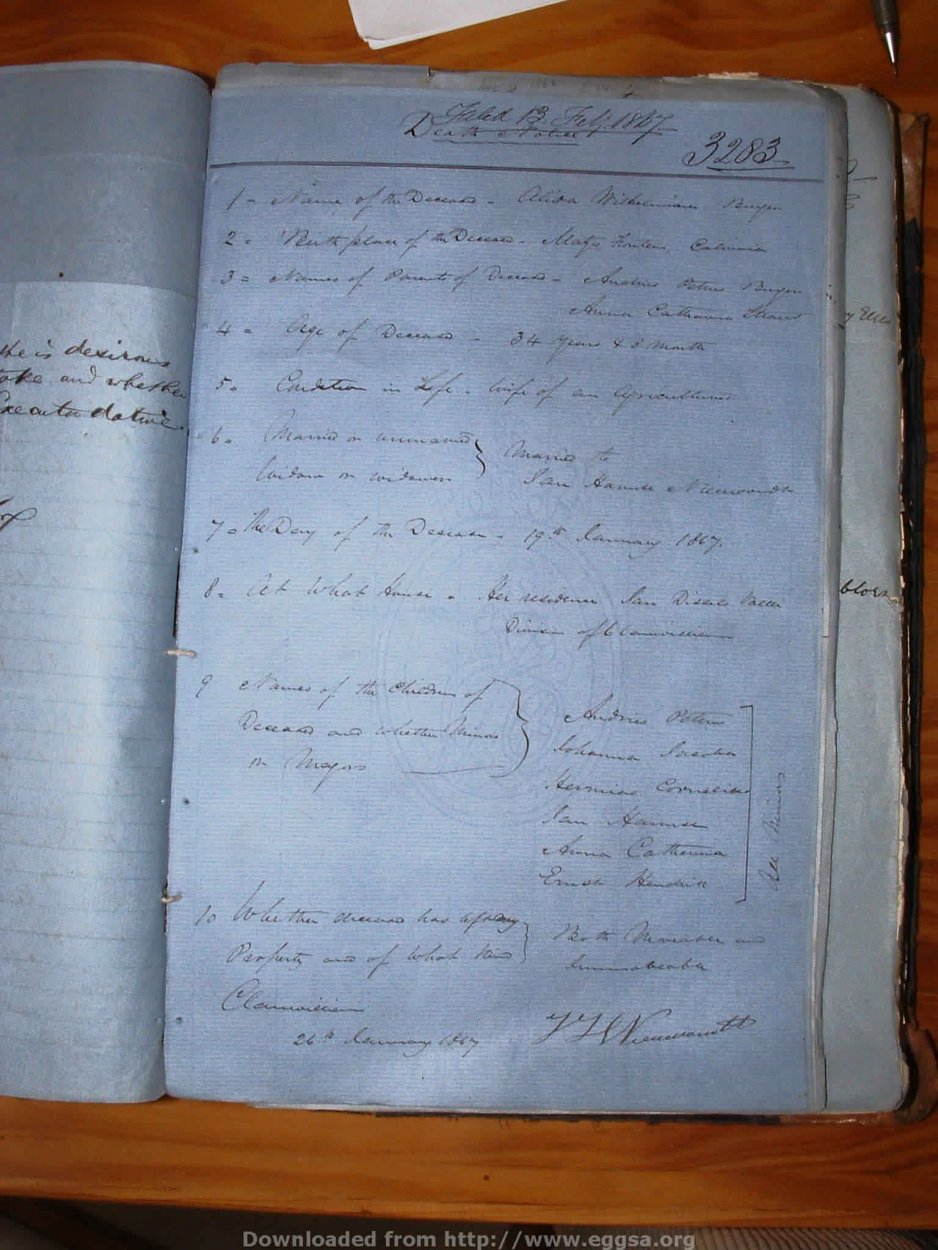 Filed 13 Feb. 1867
Death Notice
3283
1 - Name of the Deceased - Alida Wilhelmina Burger
2 = Birth place of the Deceased - Matjes Fontein Calvinia
3 = Names of Parents of Deceased - Andries Petrus Burger
Anna Catharina Strauss
4 = Age of Deceased - 34 years & 8 Month
5 = Condition in Life - Wife of an Agriculturist
6 = Married or unmarried } Married to
Widow or widower Jan Harmse Nieuwoudt
7 = The Day of the Decease - 19th January 1867.
8 = At What House - Her residence Jan Dissels Vallei
Division of Clanwilliam
9 Names of the Children of
Deceased and whether Minors
or Majors
Andries Petrus
Johanna Jacoba
Hermias Cornelius
Jan Harmse
Anna Catharina
Ernst Hendrik
All Minors
10 Whether deceased has left any
Property and of What Kind } Both Moveable and
Immoveable
Clanwilliam
26th January 1867
Nieuwoudt
He is desirous
and whether
Executor dative.
Downloaded from http://www.eggsa.org